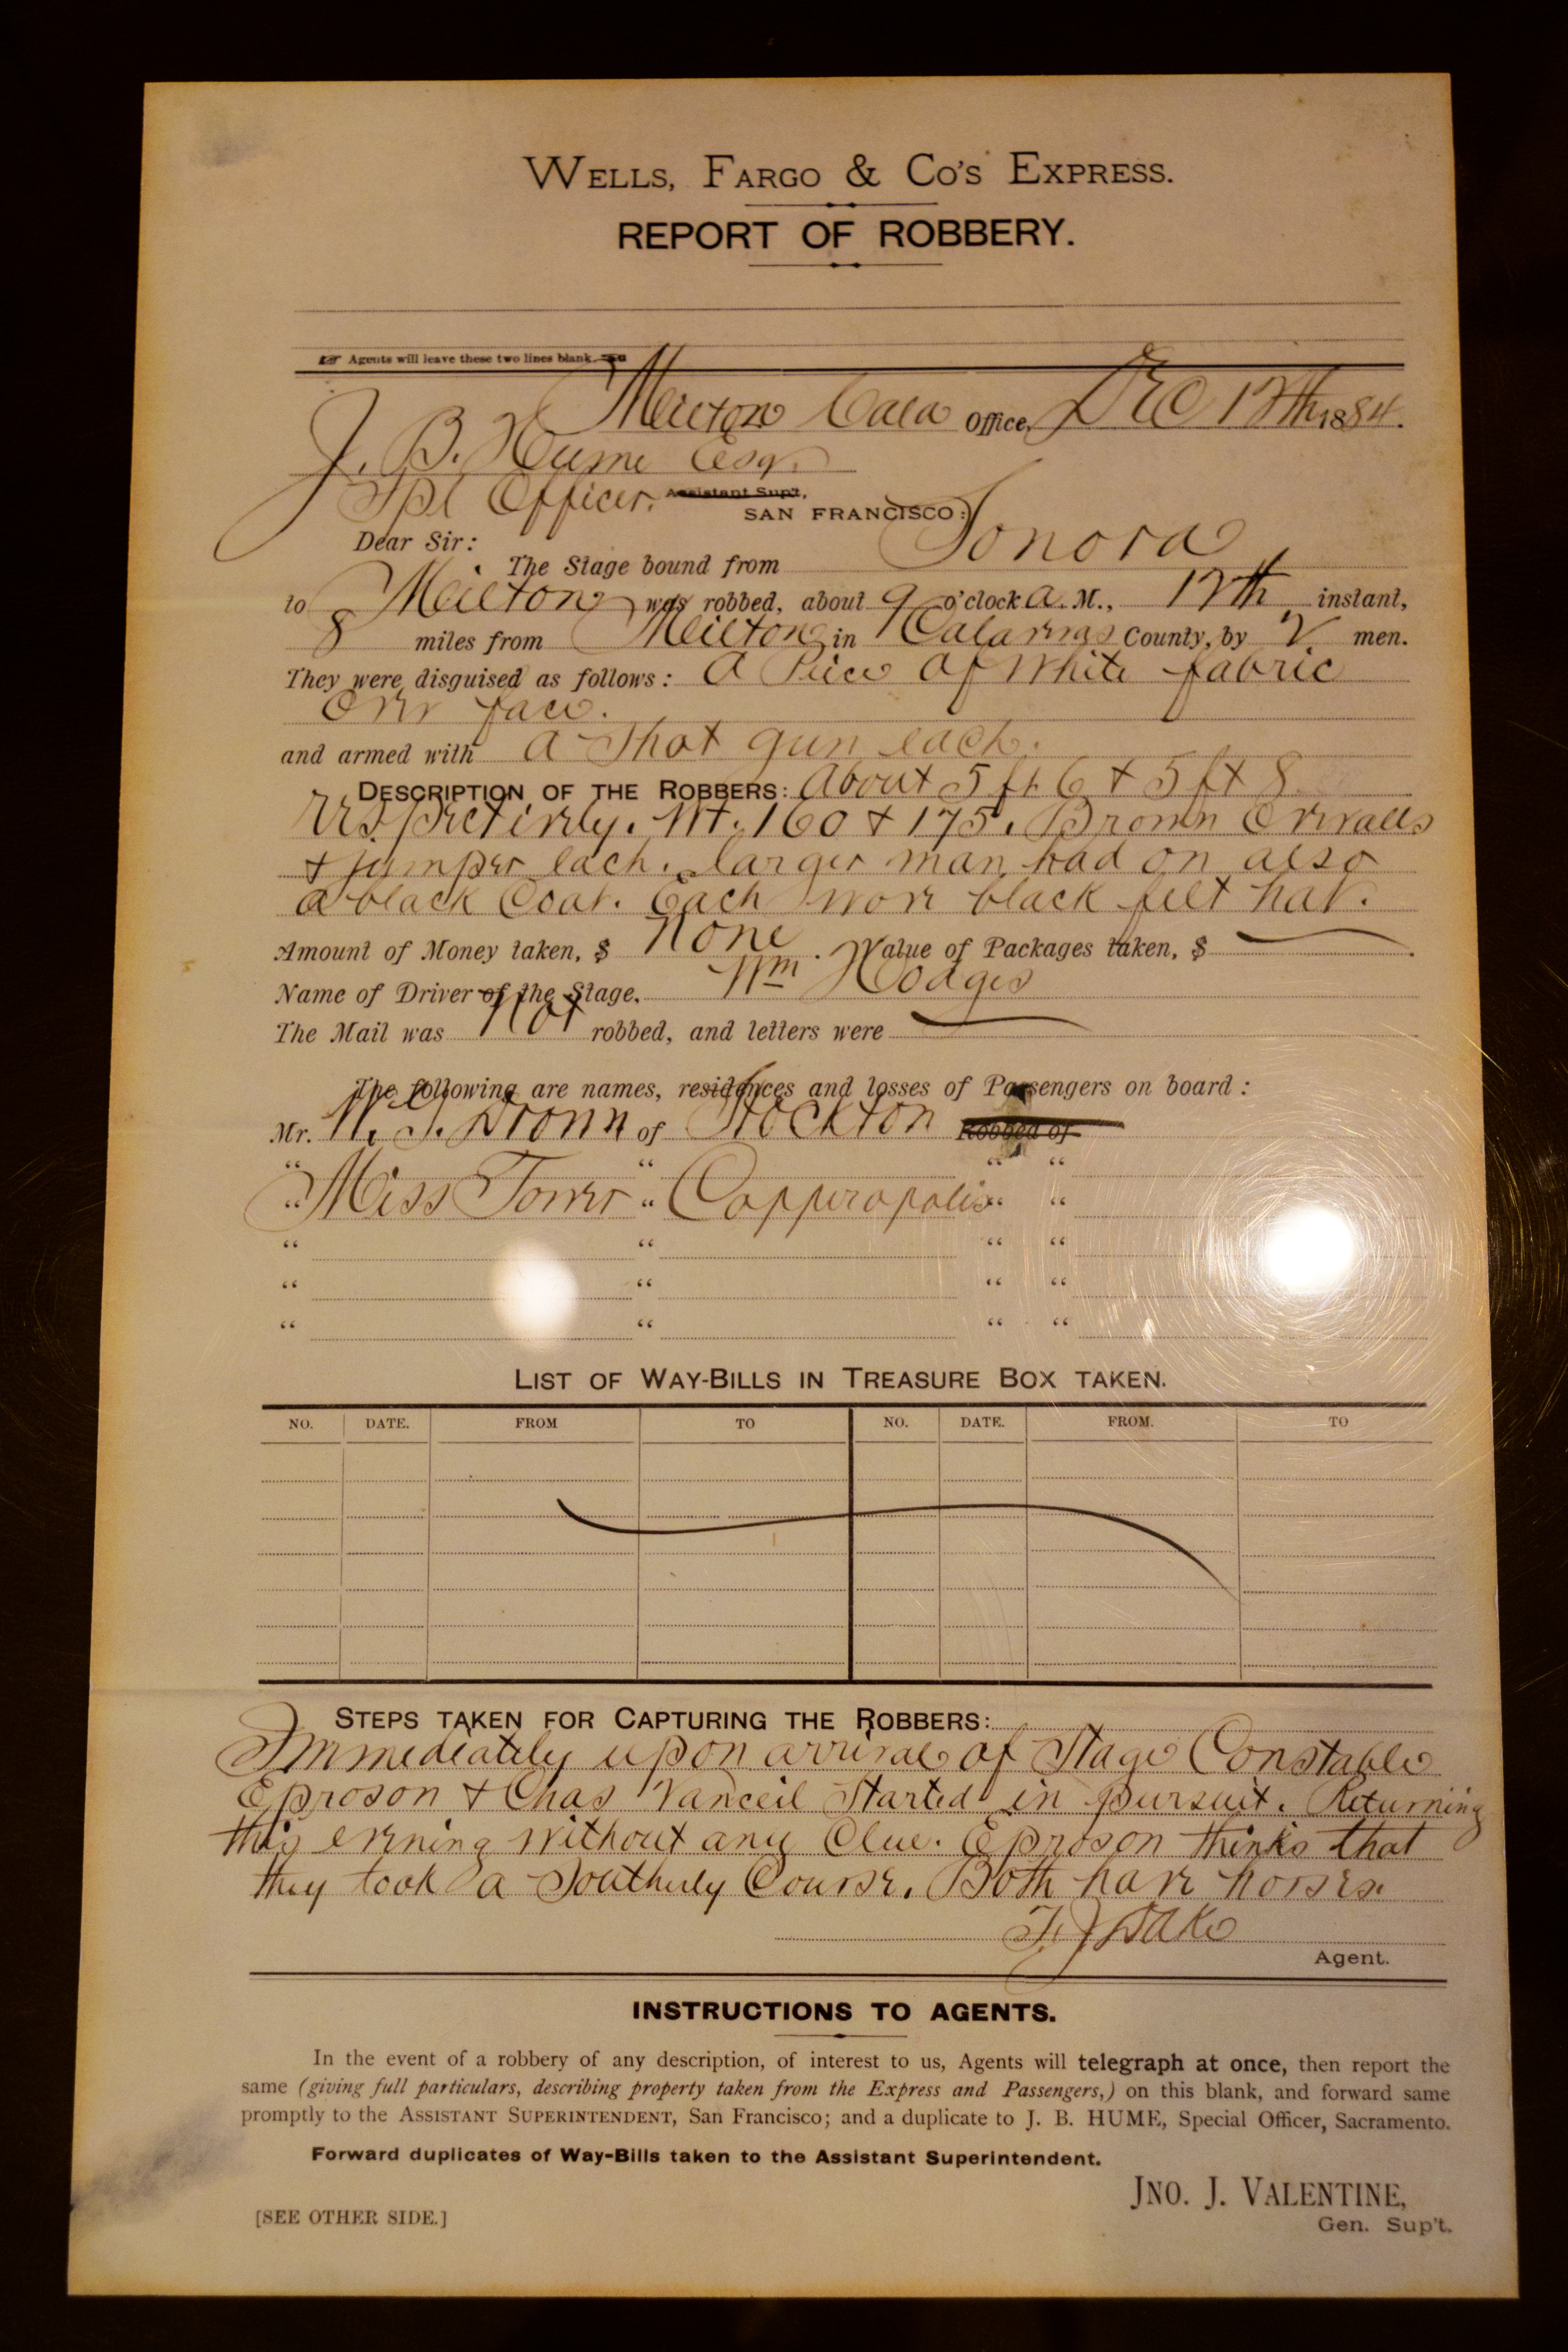 WELLS, FARGO & CO'S EXPRESS.
REPORT OF ROBBERY.
☞ Agents will leave these two lines blank. ☜
Milton Cala Office, Dec 12th 1884.
J. B. Hume Esq.
Spl Officer. Assistant Sup't,
SAN FRANCISCO:
Dear Sir:
The Stage bound from Sonora
to Milton was robbed, about 9 o'clock a. M., 12th instant,
8 miles from Milton in Calaveras County, by 2 men.
They were disguised as follows: a Peice of White fabric
over face.
and armed with a Shot gun each.
DESCRIPTION OF THE ROBBERS: About 5 ft 6 & 5 ft 8
respectively. Wt. 160 & 175. Brown Overalls
& jumper each. larger man had on also
a black Coat. Each wore black felt hat.
Amount of Money taken, $ None. Value of Packages taken, $
Name of Driver of the Stage. Wm Hodges
The Mail was Not robbed, and letters were
The following are names, residences and losses of Passengers on board:
Mr. of Stockton Robbed of
" " " "
" Miss Tower " Copperopolis " "
" " " "
" " " "
" " " "
LIST OF WAY-BILLS IN TREASURE BOX TAKEN.
NO. DATE. FROM TO NO. DATE. FROM. TO
STEPS TAKEN FOR CAPTURING THE ROBBERS:
Immediately upon arrival of Stage Constable
Eproson & Chas Vanceil Started in pursuit. Returning
this evening without any Clue. Eproson thinks that
they took a Southerly Course. Both have horses.
Agent.
INSTRUCTIONS TO AGENTS.
In the event of a robbery of any description, of interest to us, Agents will telegraph at once, then report the
same (giving full particulars, describing property taken from the Express and Passengers,) on this blank, and forward same
promptly to the ASSISTANT SUPERINTENDENT, San Francisco; and a duplicate to J. B. HUME, Special Officer, Sacramento.
Forward duplicates of Way-Bills taken to the Assistant Superintendent.
JNO. J. VALENTINE,
[SEE OTHER SIDE.] Gen. Sup't.